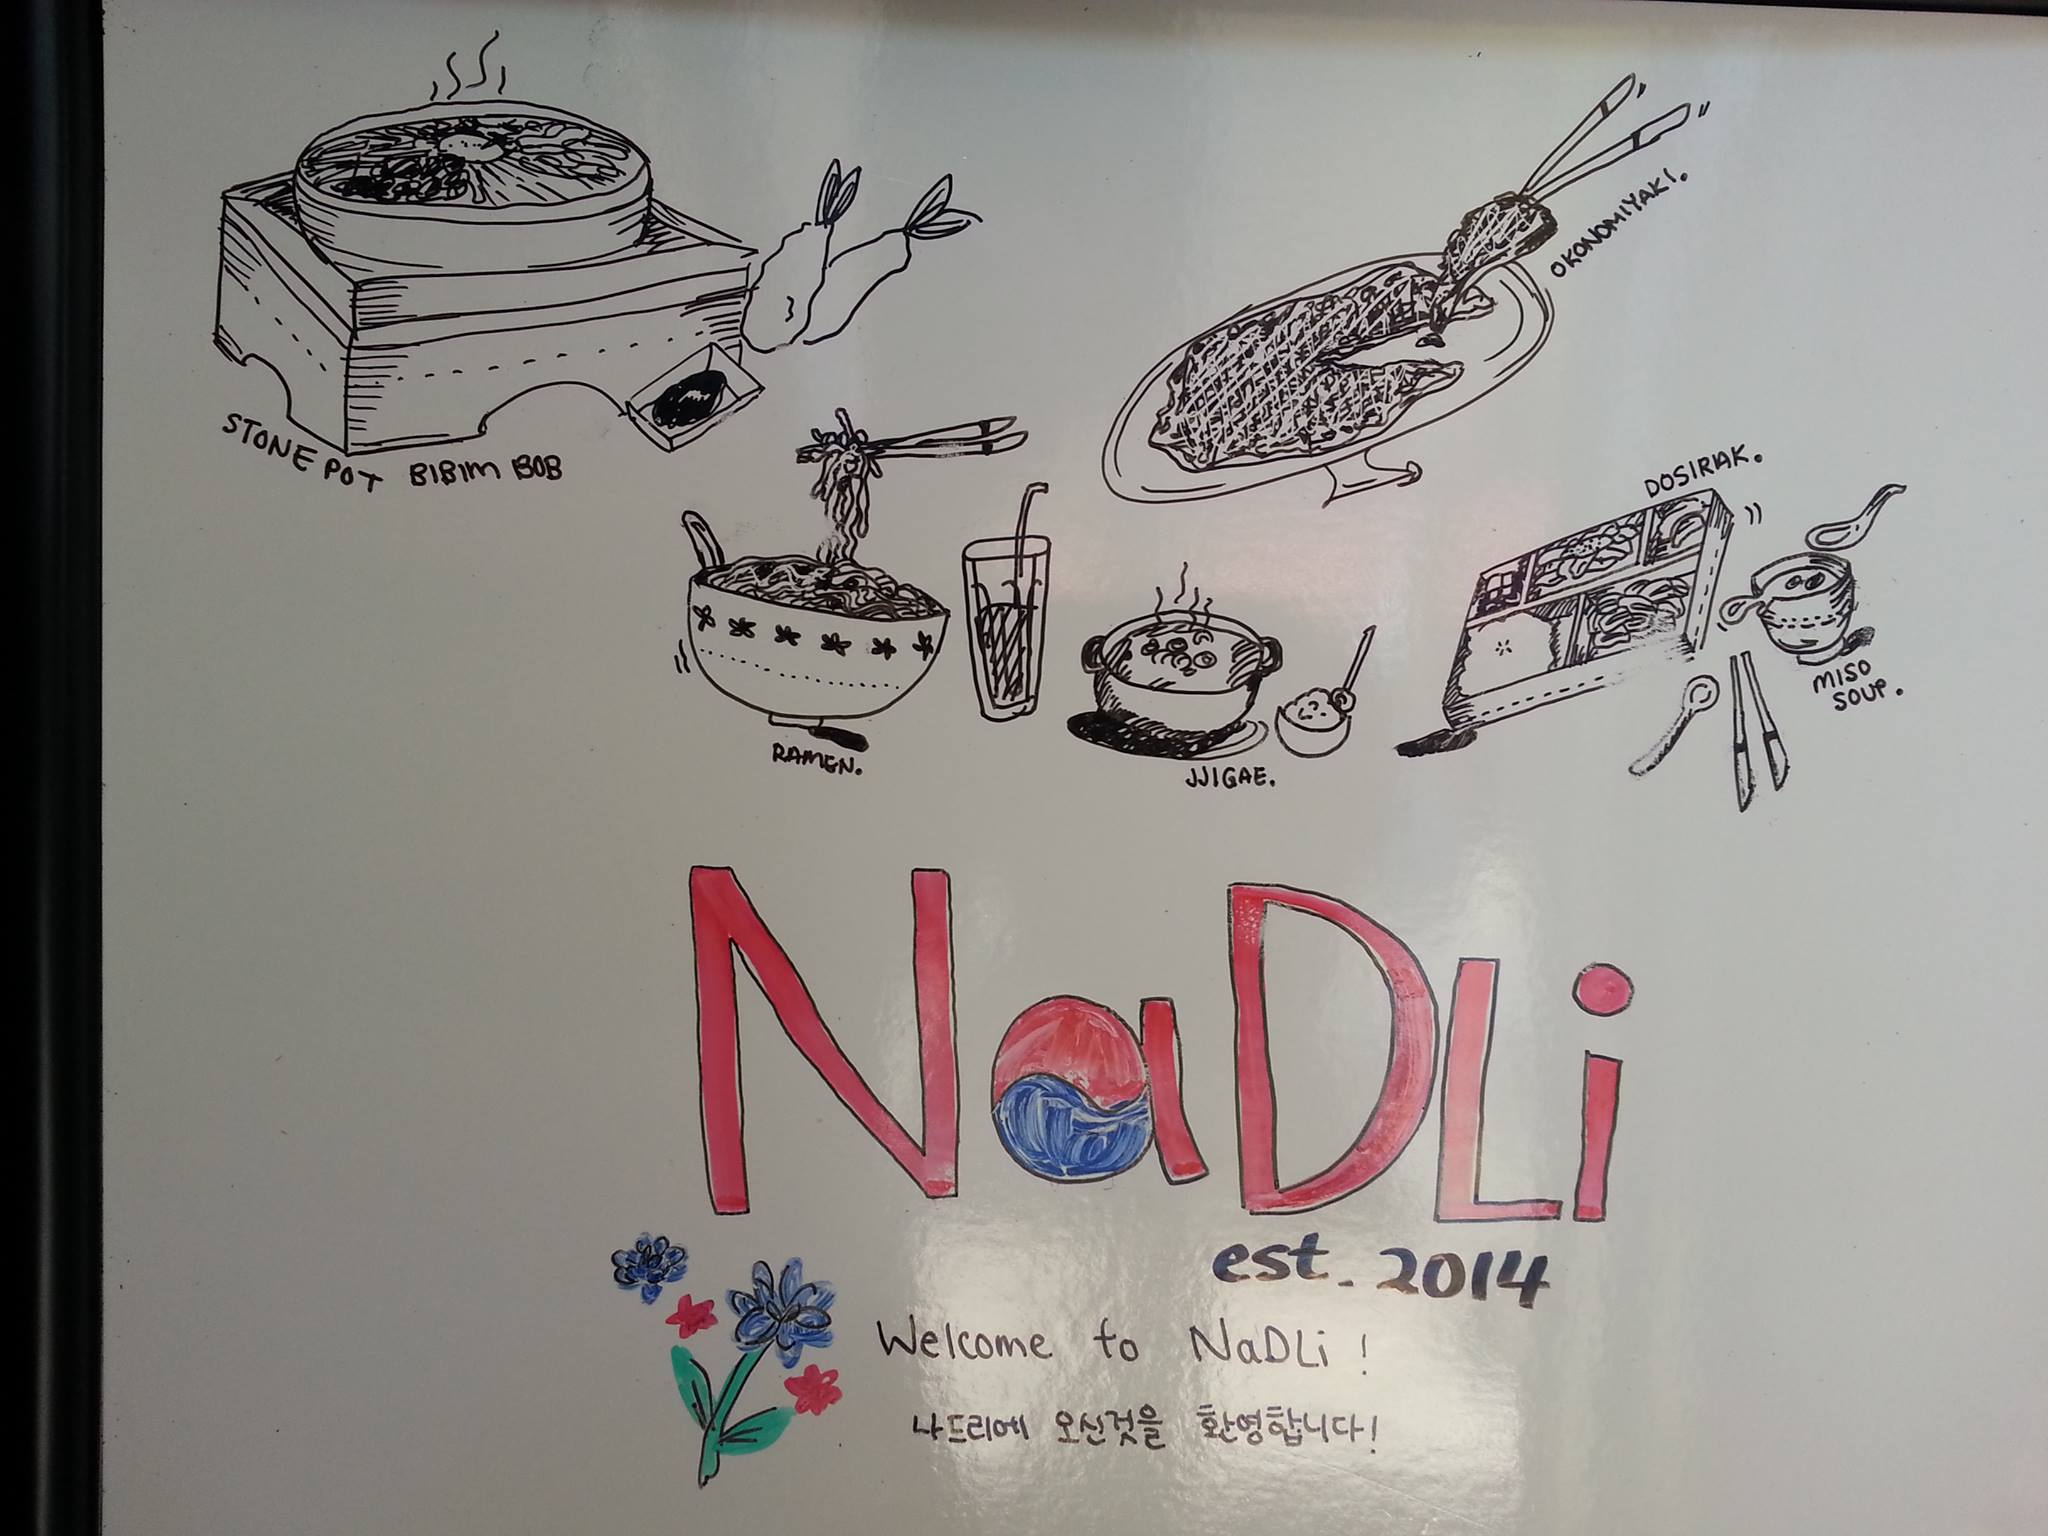 STONE POT BIBIM BOB
OKONOMIYAKI.
DOSIRAK.
MISO
SOUP.
RAMEN.
JJIGAE.
NaDLi
est. 2014
Welcome to NaDLi !
나드리에 오신것을 환영합니다!